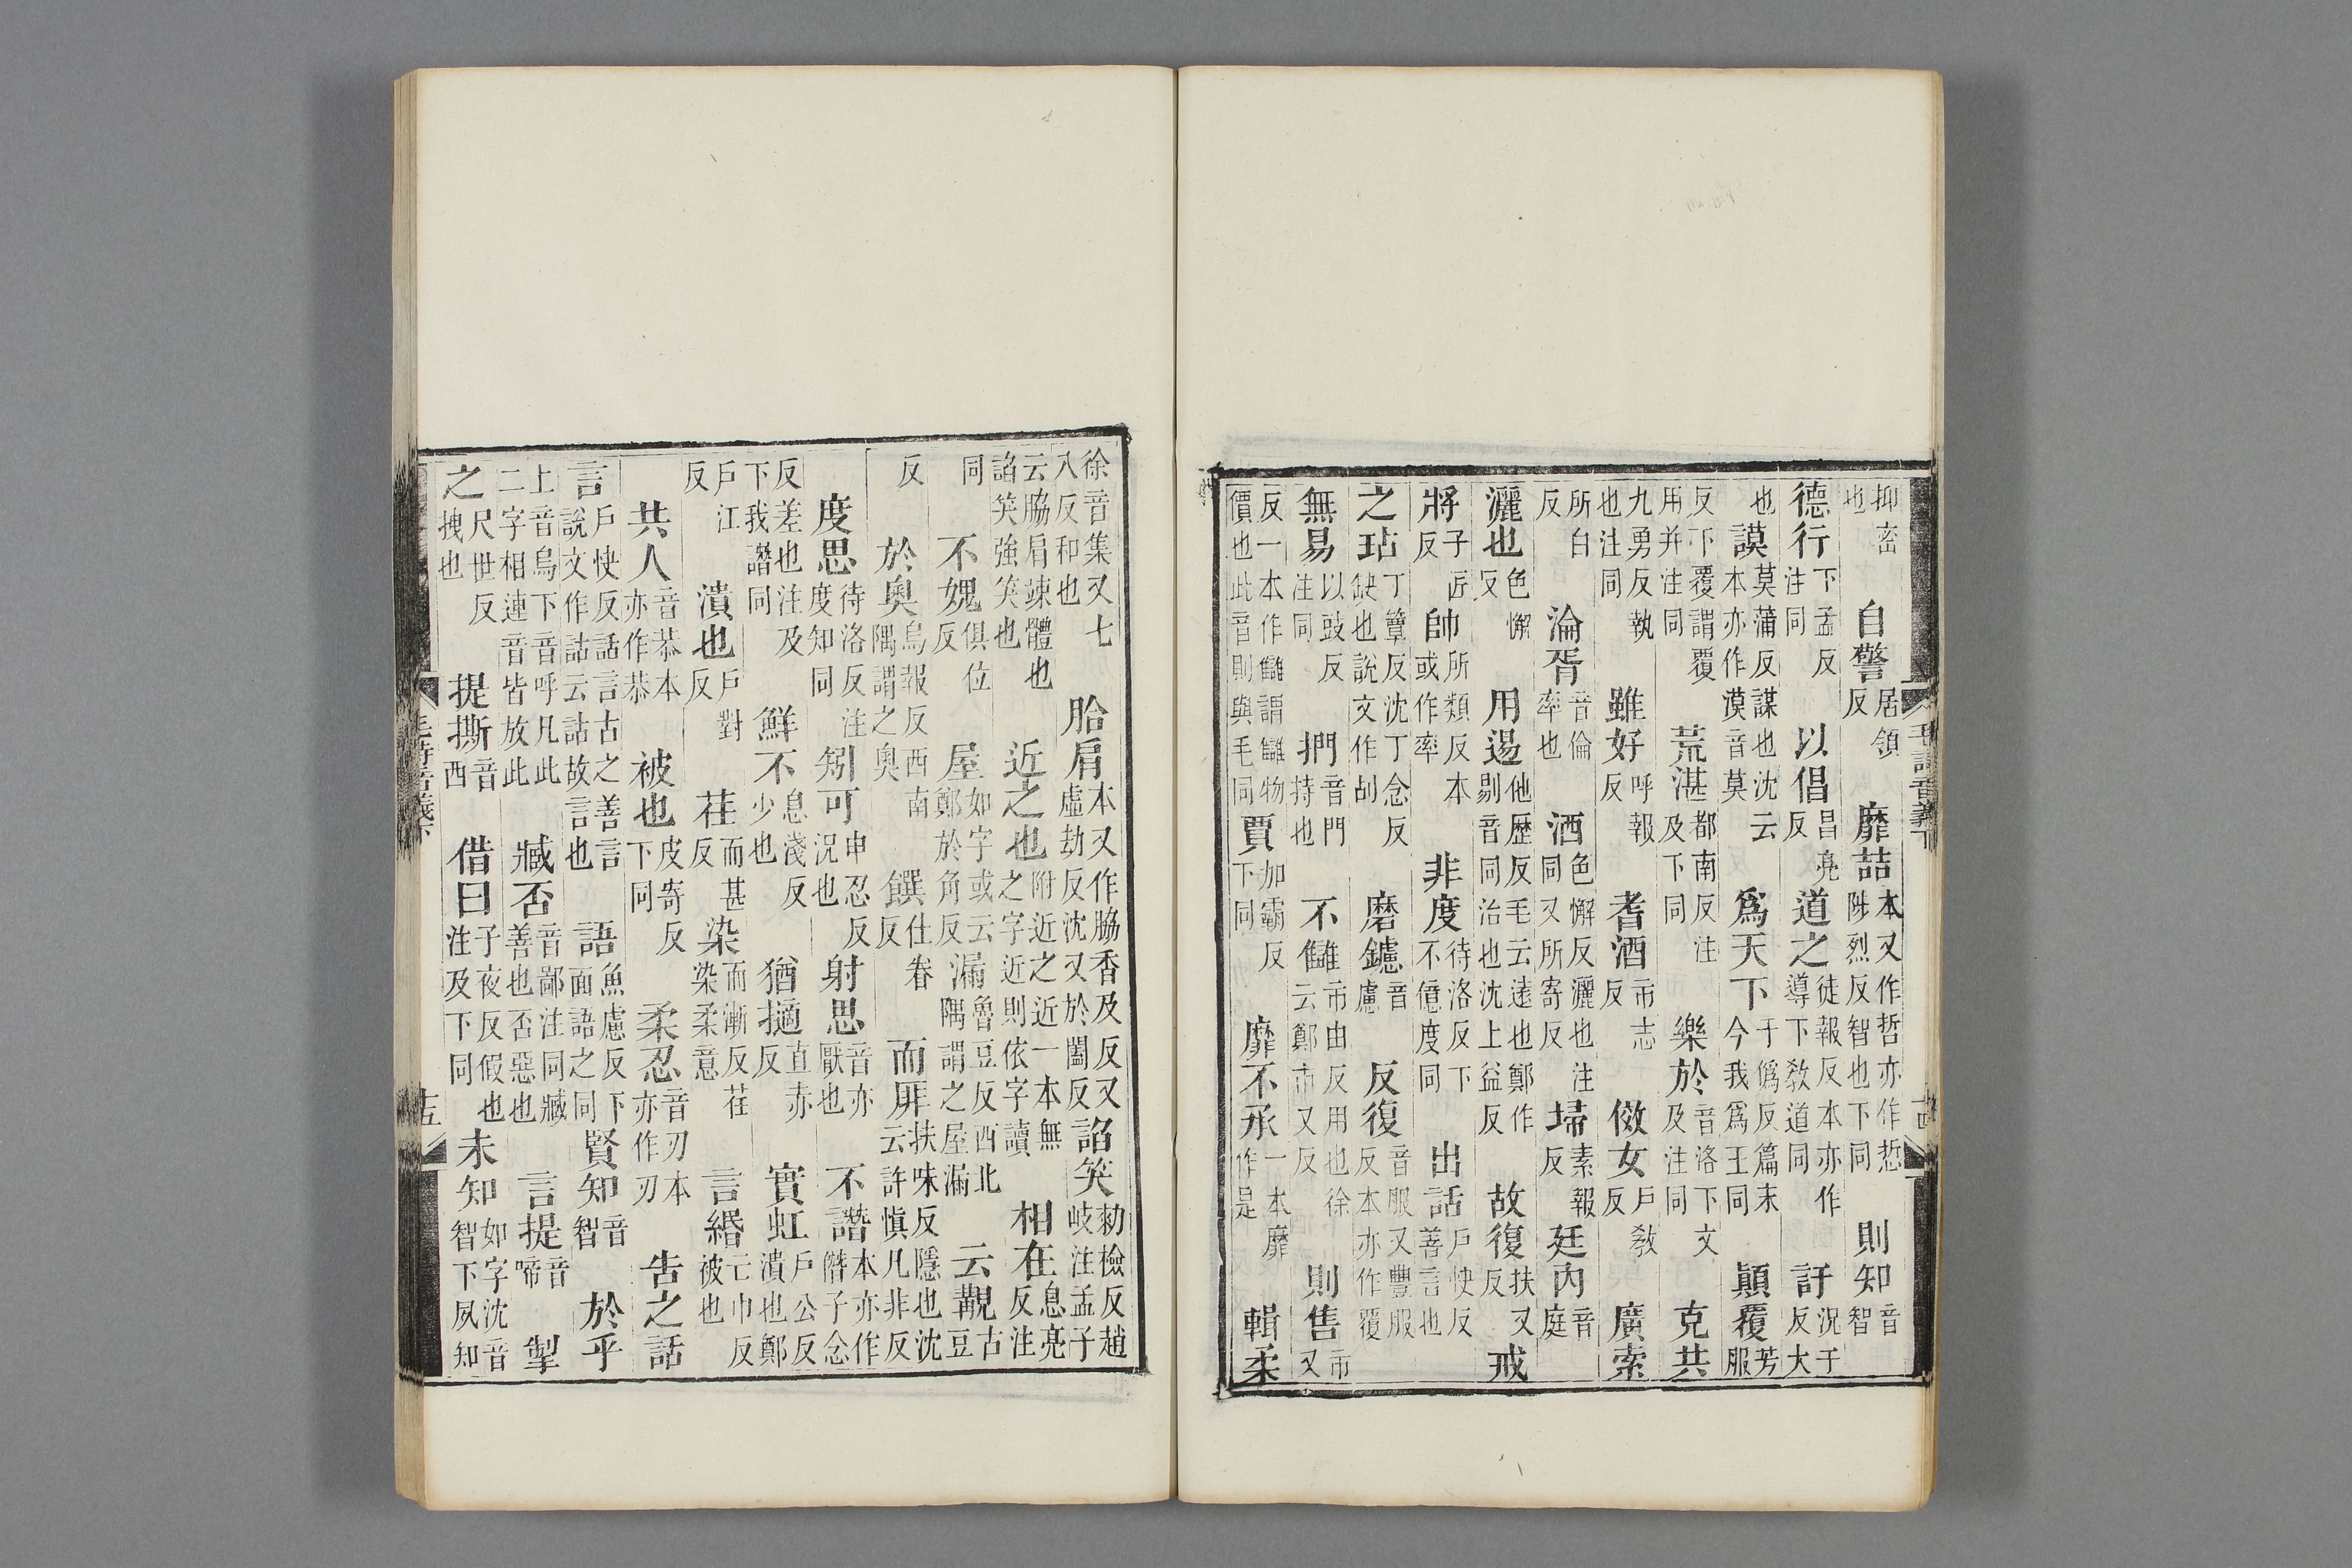 抑密也　自警居領反　靡喆本又作哲亦作悊陟烈反智也下同　則知音智
德行下孟反注同　以倡昌亮反　道之徒報反本亦作導下教道同　訏況于反大
也　謨莫蒲反謀也沈云本亦作漠音莫　爲天下于僞反篇末今我爲王同　顛覆芳服
反下覆謂覆用并注同　荒湛都南反注及下同　樂於音洛下文及注同　克共
九勇反執也注同　雖好呼報反　耆酒市志反　傚女戶教反　廣索
所白反　淪胥音倫率也　洒色懈反灑也注同又所寄反　埽素報反　廷內音庭
灑也色懈反　用逷他歷反毛云遠也鄭作剔音同治也沈上益反　故復扶又反　戒
將子匠反　帥所類反本或作率　非度待洛反下不億度同　出話戶快反善言也
之玷丁簟反沈丁念反缺也說文作㓠　磨鑢音慮　反復音服又豐服反本亦作覆
無易以豉反注同　捫音門持也　不讎市由反用也徐云鄭市又反　則售市又
反一本作讎謂讎物價也此音則與毛同　賈加霸反下同　靡不承一本靡作是　輯柔
毛詩音義下　十四
徐音集又七入反和也　胎肩本又作脇香及反又虛劫反沈又於闔反　諂笑勑檢反趙岐注孟子
云脇肩竦體也諂笑強笑也　近之也附近之近一本無之字近則依字讀　相在息亮反注
同　不媿俱位反　屋如字或云鄭於角反　漏魯豆反西北隅謂之屋漏　云覯古豆
反　於奧烏報反西南隅謂之奧　饌仕眷反　而厞扶味反隱也沈云許愼凡非反
度思待洛反注度知同　矧可申忍反況也　射思音亦厭也　不譖本亦作僭子念
反差也注及下我譖同　鮮不息淺反少也　猶擿直赤反　實虹戶公反潰也鄭
戶江反　潰也戶對反　荏而甚反　染而漸反荏染柔意　言緡亡巾反被也
共人音恭本亦作恭　被也皮寄反下同　柔忍音刃本亦作刃　告之話
言戶快反話言古之善言也說文作詁云詁故言也　語魚慮反下面語之同　賢知音智　於乎
上音烏下音呼凡此二字相連音皆放此　臧否音鄙注同臧善也否惡也　言提音啼　掣
之尺世反拽也　提撕音西　借曰子夜反假也注及下同　未知如字沈音智下夙知
毛詩音義下　十五